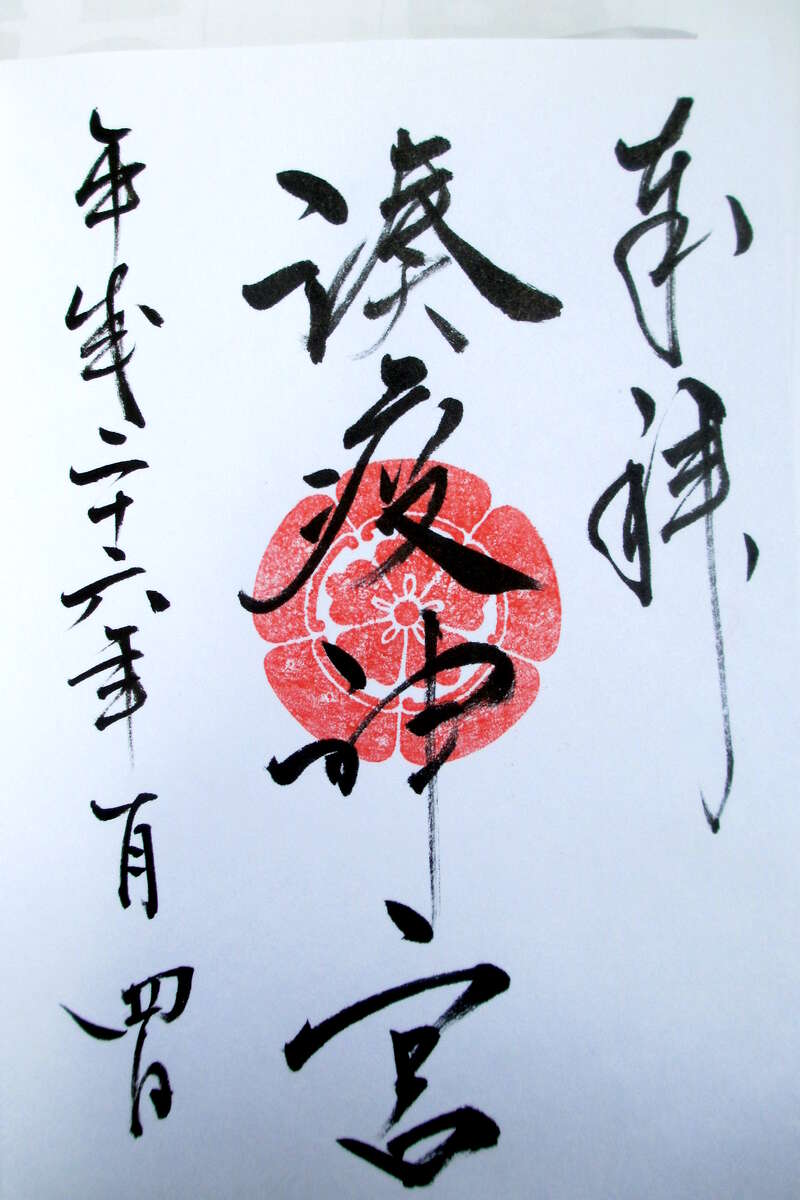 奉拝
湊疫神宮
平成二十六年一月四日